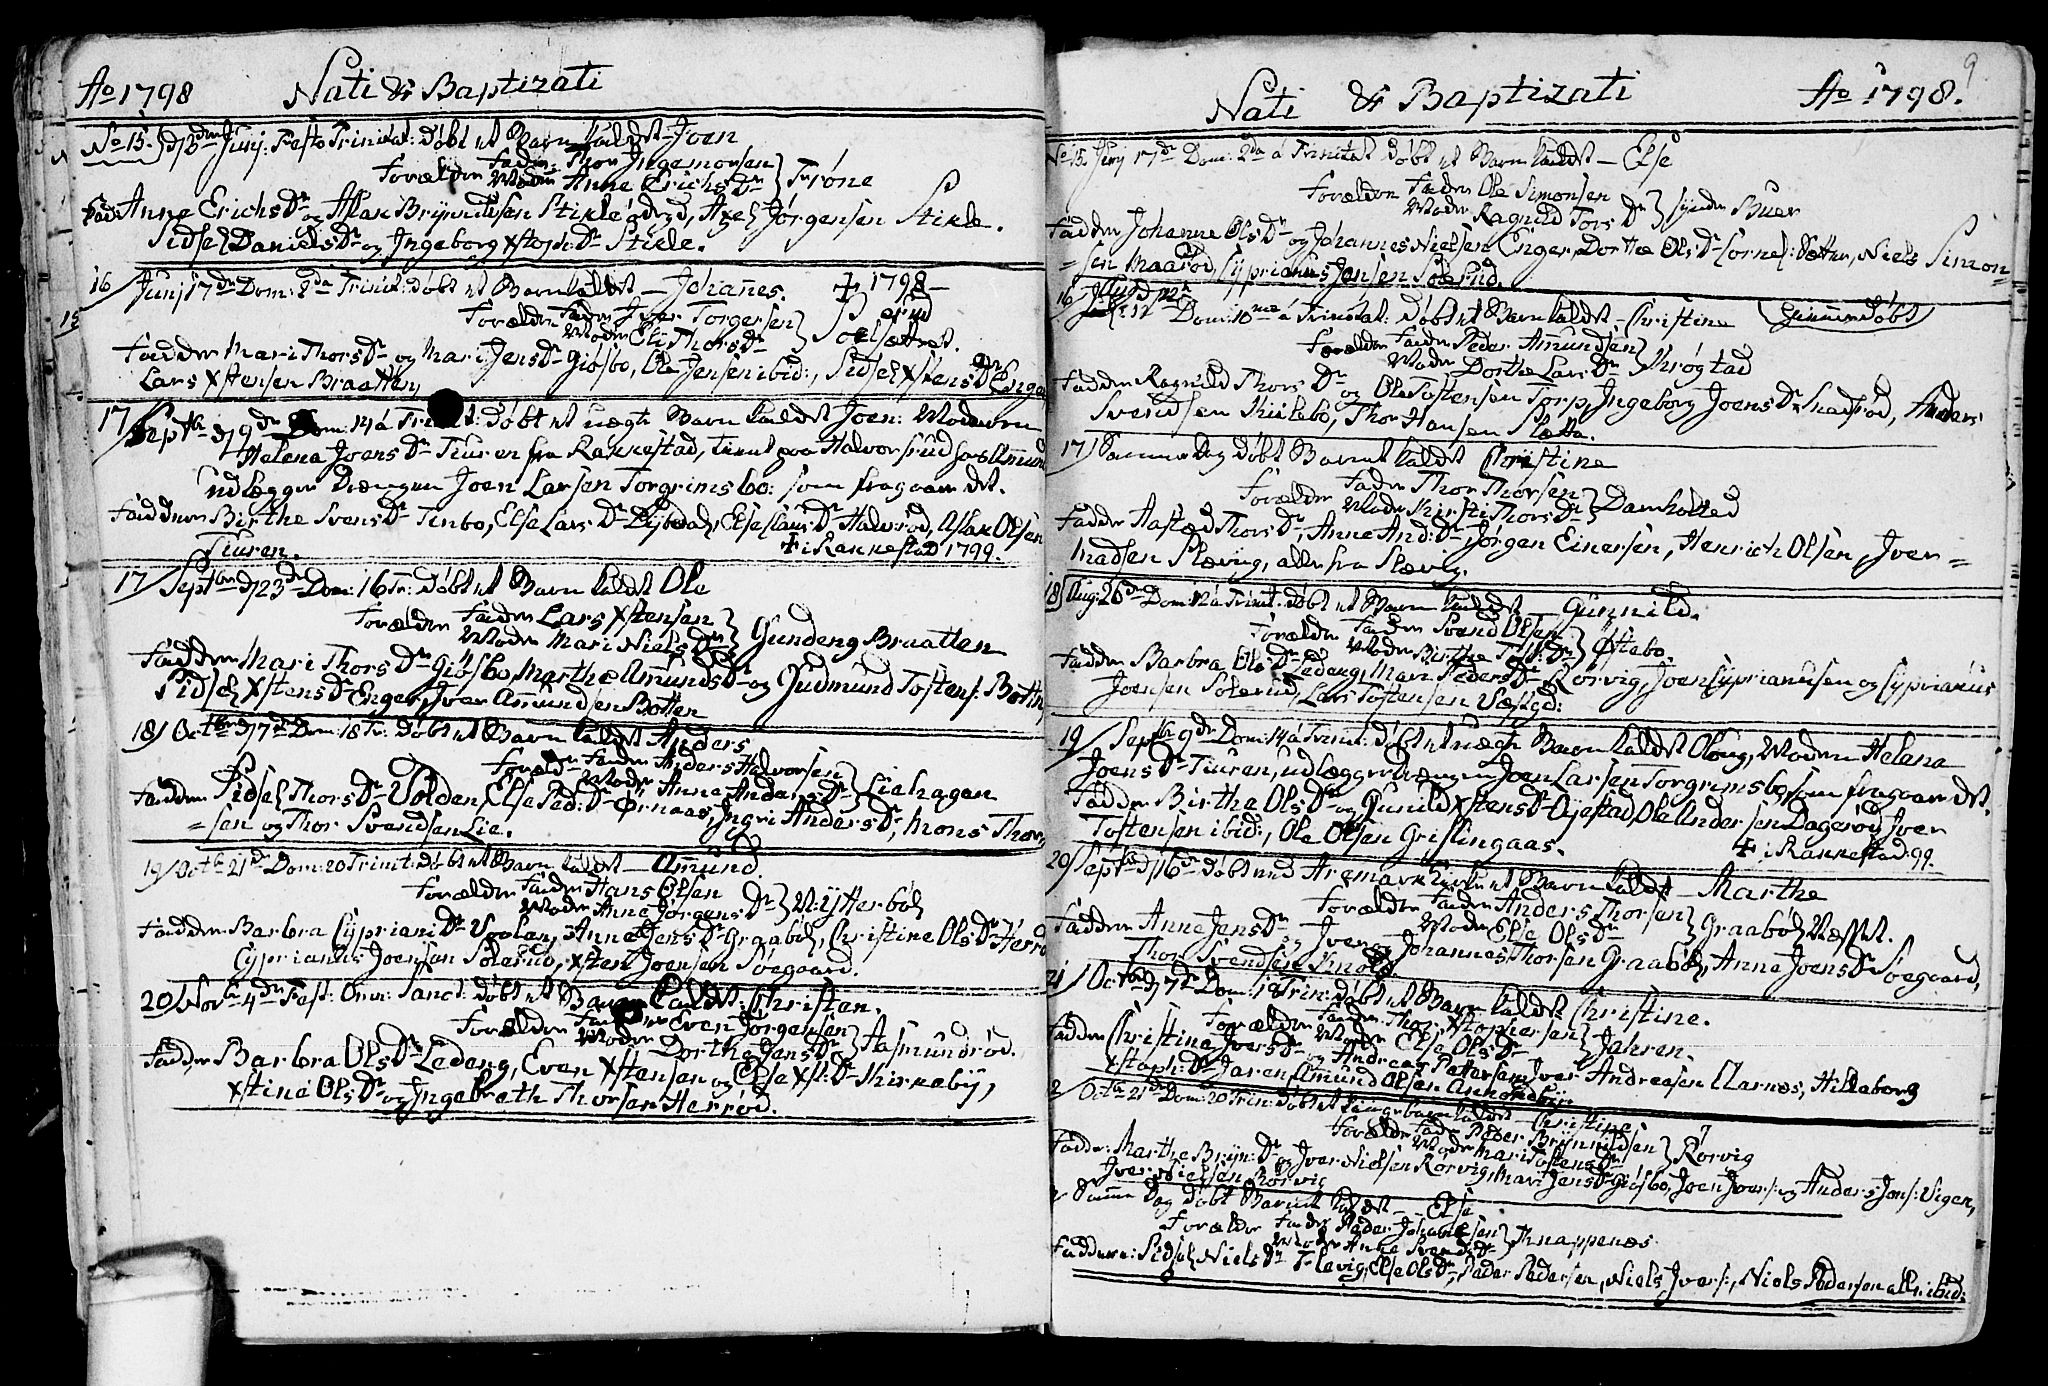 Ao 1798 Nati & Baptizati
No 15. d 3den Junj: Festo Trinitat: døbt et Barn kaldet Joen
Forælder Fader Thor Ingemorsen
Moder Anne Erichs Dr } Trøne
Fad: Anne Erichs Dr og Aslax Brynnildsen Stikle ødegd, Axel Jørgensen Stikle.
Sidsel Daniels Dr og Ingeborg Xstoph: Dr Stikle.
16 Junj 17de Dom: 2da Trinit: døbt et Barn kaldet – Johannes. † 1798
Forælder Fader Iver Torgersen
Moder Eli Thors Dr } Soelsættret.
Fadder Mari Thors Dr og Mari Jens Dr Giøsbo, Ole Jensen ibid:, Sidsel Xstens Dr Enger
Lars Xstensen Braatten,
17/ Septbr d 9de Dom: 14 á Trinit: døbt et uægte Barn kaldet Joen: Moderen
Helena Joens Dr Tiuren fra Rakkestad, tient paa Halvorsrud hos Amund
udlægger Drængen Joen Larsen Torgrimsbo: som fragaaer det.
Faddere Birthe Svens Dr Tenbo, Else Lars Dr Lysedal, Else Claus Dr Halvsrød, Aslak Olsen
Tiuren. † i Rakkestad 1799.
17/ Septbr d 23de Dom: 16 Tr: døbt et Barn kaldet Ole
Forælder Fader Lars Xstensen
Moder Mari Niels Dr } Gundeng Braatten
Fadder Mari Thors Dr Giøsbo, Marthe Amunds Dr og Gudmund Tostens: Botten,
Sidsel Xstens Dr Enger, Iver Amundsen Botten
18/ Octbr d 7de Dom: 18 Tr: døbt et Barn kaldet Anders
Foræld: Fader Anders Halvorsen
Moder Anne Anders Dr } Liehagen
Fadder Sidsel Thors Dr Volden, Else Ped: Dr Ørnaas, Ingri Anders Dr, Mons Thor,
=sen og Thor Svendsen Lie.
19/ Octbr 21de Dom: 20 Trinit: døbt et Barn kaldet – Amund.
Forælder Fader Hans Olsen
Moder Anne Jørgens Dr } N: Ytterbøl
Fadder Barbra Cypriani Dr Voolen, Anne Jens Dr Graabøl, Christine Ols Dr Herrø
Cyprianus Joensen Solerud, Xsten Joensen Søegaard.
20/ Novbr 4de Fest: Omn: Sanct: døbt et Barn kaldet: Christen.
Forælder Fader Even Jørgensen
Moder Dorthe Jens Dr } Aasmundrød.
Fadder Barbra Ols Dr Ledeng, Even Xstensen og Else Xst: Dr Kirkebÿ,
Xstine Ols Dr og Ingebreth Thorsen Herrød.
9
Nati & Baptizati Ao 1798.
No 15. Junj 17de Dom: 2da á Trinitat døbt et Barn kaldet – Else
Forælder Fader Ole Simonsen
Moder Ragnild Tors Dr } Synder Buer
Fadder Johanne Ols Dr og Johannes Nielsen Enger, Dorthe Ols Dr Sætter, Niels Simon=
=sen Maarød, Cyprianus Jensen Solerud.
16 Aug: 12te Dom: 10me á Trinitat: døbt et Barn kaldet – Christine (hiemmedøbt)
Forælder Fader Peder Amundsen
Moder Dorthe Lars Dr } Krogstad
Fadder Ragnild Thors Dr og Ole Tostensen Torp, Ingeborg Joens Dr, Anders
Svendsen Kirkebo, Thor Hansen Slætta.
17/ Samme Dag døbt Barnet kaldet Christine
Forælder Fader Thor Thorsen
Moder Kirsti Thors Dr } Damholted
Fadder Aasted Thors Dr, Anne And: Dr, Jørgen Einersen, Henrich Olsen, Iver=
Madsen Slævig, alle fra Slævig.
18/ Aug: 26de Dom: 12 á Trinit: døbt et Barn kaldet Gunnild.
Forælder Fader Svend Olsen
Moder Birthe Tost: Dr } Østebo.
Fadder Barbra Ols Dr Ledeng, Mari Peders Dr Rørvig, Joen Cyprianusen og Cyprianus
Joensen Solerud, Lars Tostensen Væstgd:
19/ Septbr 9de Dom: 14 á Trinit: døbt et uægte Barn kaldet Oloug, Moderen Helena
Joens Dr Tiuren, udlægger Drængen Joen Larsen Torgrimsbo, som fragaaer det.
Fadder Birthe Ols Dr og Gunild Xstens Dr Øjestad, Ole Andersen Dagerød, Iver
Tostensen ibid:, Ole Olsen Grislingaas. † i Rakkestad 99.
20/ Septbr d 16de døbt ved Aremark Kirke et Barn kaldet – Marthe
Forælder Fader Anders Thorsen
Moder Else Ols Dr } Graabøl Væstre.
Fadder Anne Jens Dr og Iver og Johannes Thorsen Graabøl, Anne Joens Dr Søegaard,
Thor Svendsen Knold
21/ Octbr d 7de Dom: 18 Trin: døbt et Barn kaldet Christine.
Forælder Fader Thor Xstophersen
Moder Else Ols Dr } Jahren.
Fadder Christine Ivers Dr og Andreas Pettersen, Iver Andreasen Aarnæs, Hilleborg
Xstoph: Dr Jaren, Amund Olsen Askondbÿ.
2/ Octbr 21de Dom: 20 Trin: døbt et kaldet Christine
Forælder Fader Peder Brÿnnildsen
Moder Mari Tostens Dr } Rørvig
Fadder: Marthe Brÿn: Dr og Iver Nielsen Rørvig, Mari Jens Dr Giøsbo, Joen Ivers: og Anders Jens: Vigen,
Iver Nielsen Rørvig
2/ Samme Dag døbt Barnet kaldet – Else
Forælder Fader Peder Johannesen
Moder Anne Svends Dr } Knappenæs
Faddere: Sidsel Niels Dr Slevig, Else Ols Dr, Peder Pedersen, Niels Ivers:, Niels Pedersen alle ibid: